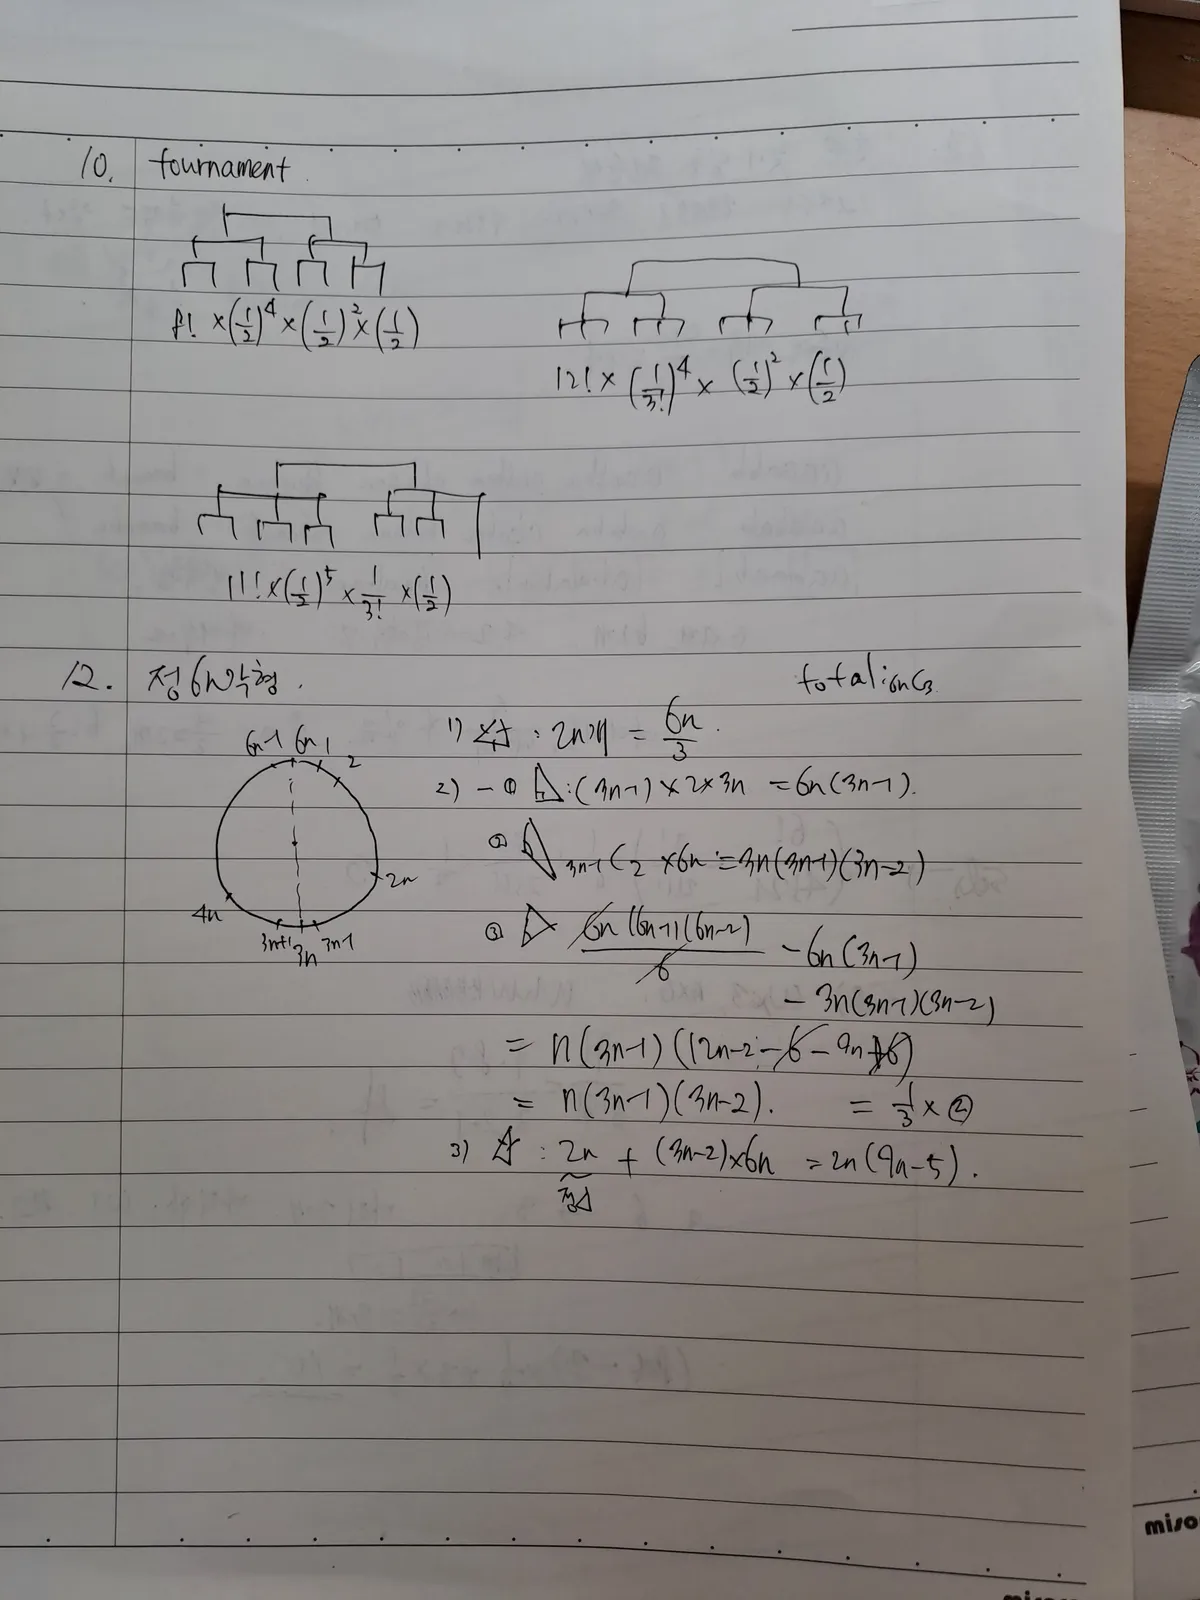 10. tournament.
8! × (1/2)^4 × (1/2)^2 × (1/2)
12! × (1/3!)^4 × (1/2)^2 × (1/2)
11! × (1/2)^5 × 1/3! × (1/2)
12. 정6n각형.
total : 6nC3
6n-1 6n 1 2
2n
4n
3n+1 3n 3n-1
1) 정△ : 2n개 = 6n/3.
2) - ① ◺ : (3n-1) × 2 × 3n = 6n(3n-1).
② 3n-1C2 × 6n = 3n(3n-1)(3n-2)
③ 6n(6n-1)(6n-2)/6 - 6n(3n-1)
- 3n(3n-1)(3n-2)
= n(3n-1)(12n-2-6-9n+6)
= n(3n-1)(3n-2). = 1/3 × ②
3) : 2n + (3n-2)×6n = 2n(9n-5).
정△
miso